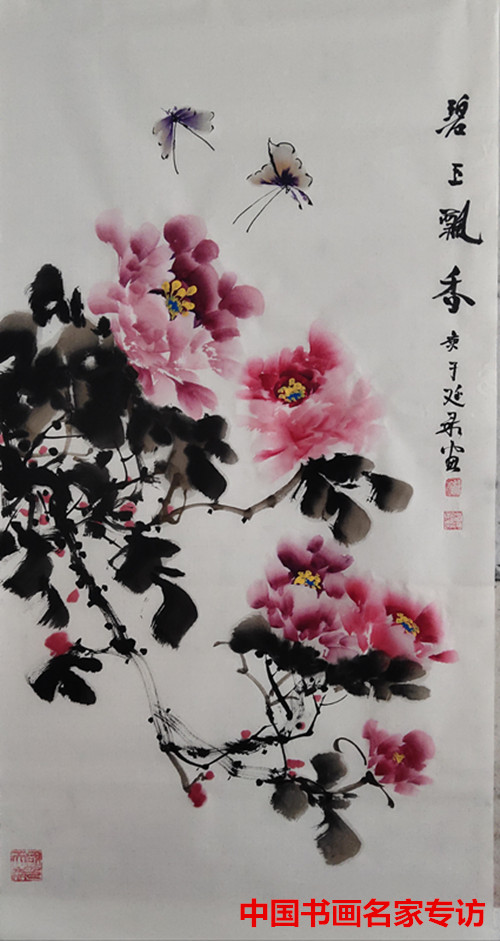 碧玉飘香
庚子延君画
中国书画名家专访